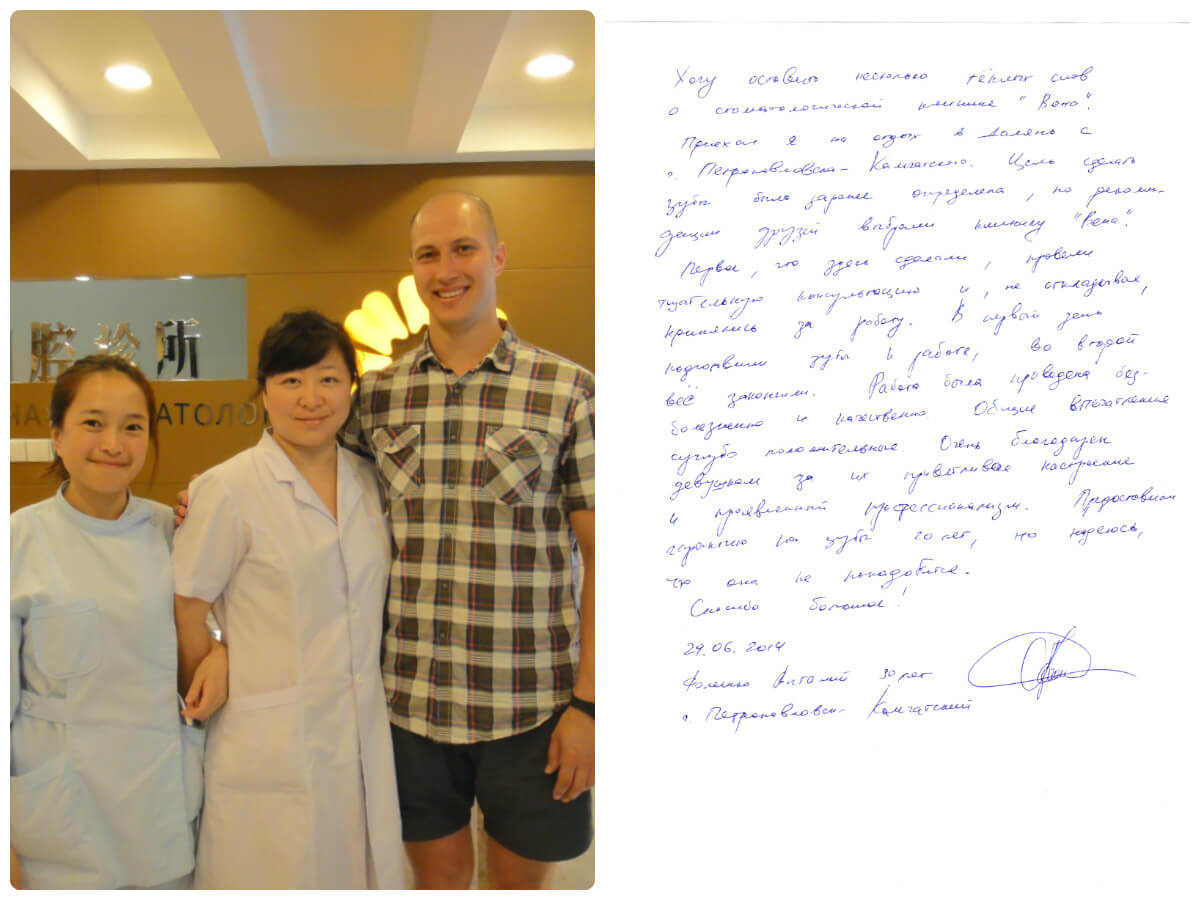 腔诊所
НАЯ
АТОЛО
Хочу оставить несколько тёплых слов
о стоматологической клинике "Вена".
Приехал я на отдых в Далянь с
г. Петропавловска-Камчатского. Цель сделать
зубы была заранее определена, по рекомен-
дации друзей выбрали клинику "Вена".
Первое, что здесь сделали, провели
тщательную консультацию и, не откладывая,
принялись за работу. В первый день
подготовили зубы к работе, во второй
всё закончили. Работа была проведена без-
болезненно и качественно. Общие впечатления
сугубо положительные. Очень благодарен
девушкам за их приветливое настроение
и проявленный профессионализм. Предоставили
гарантию на зубы 20 лет, но надеюсь,
что она не понадобится.
Спасибо большое!
29.06.2014
Виталий 30 лет
г. Петропавловск-Камчатский